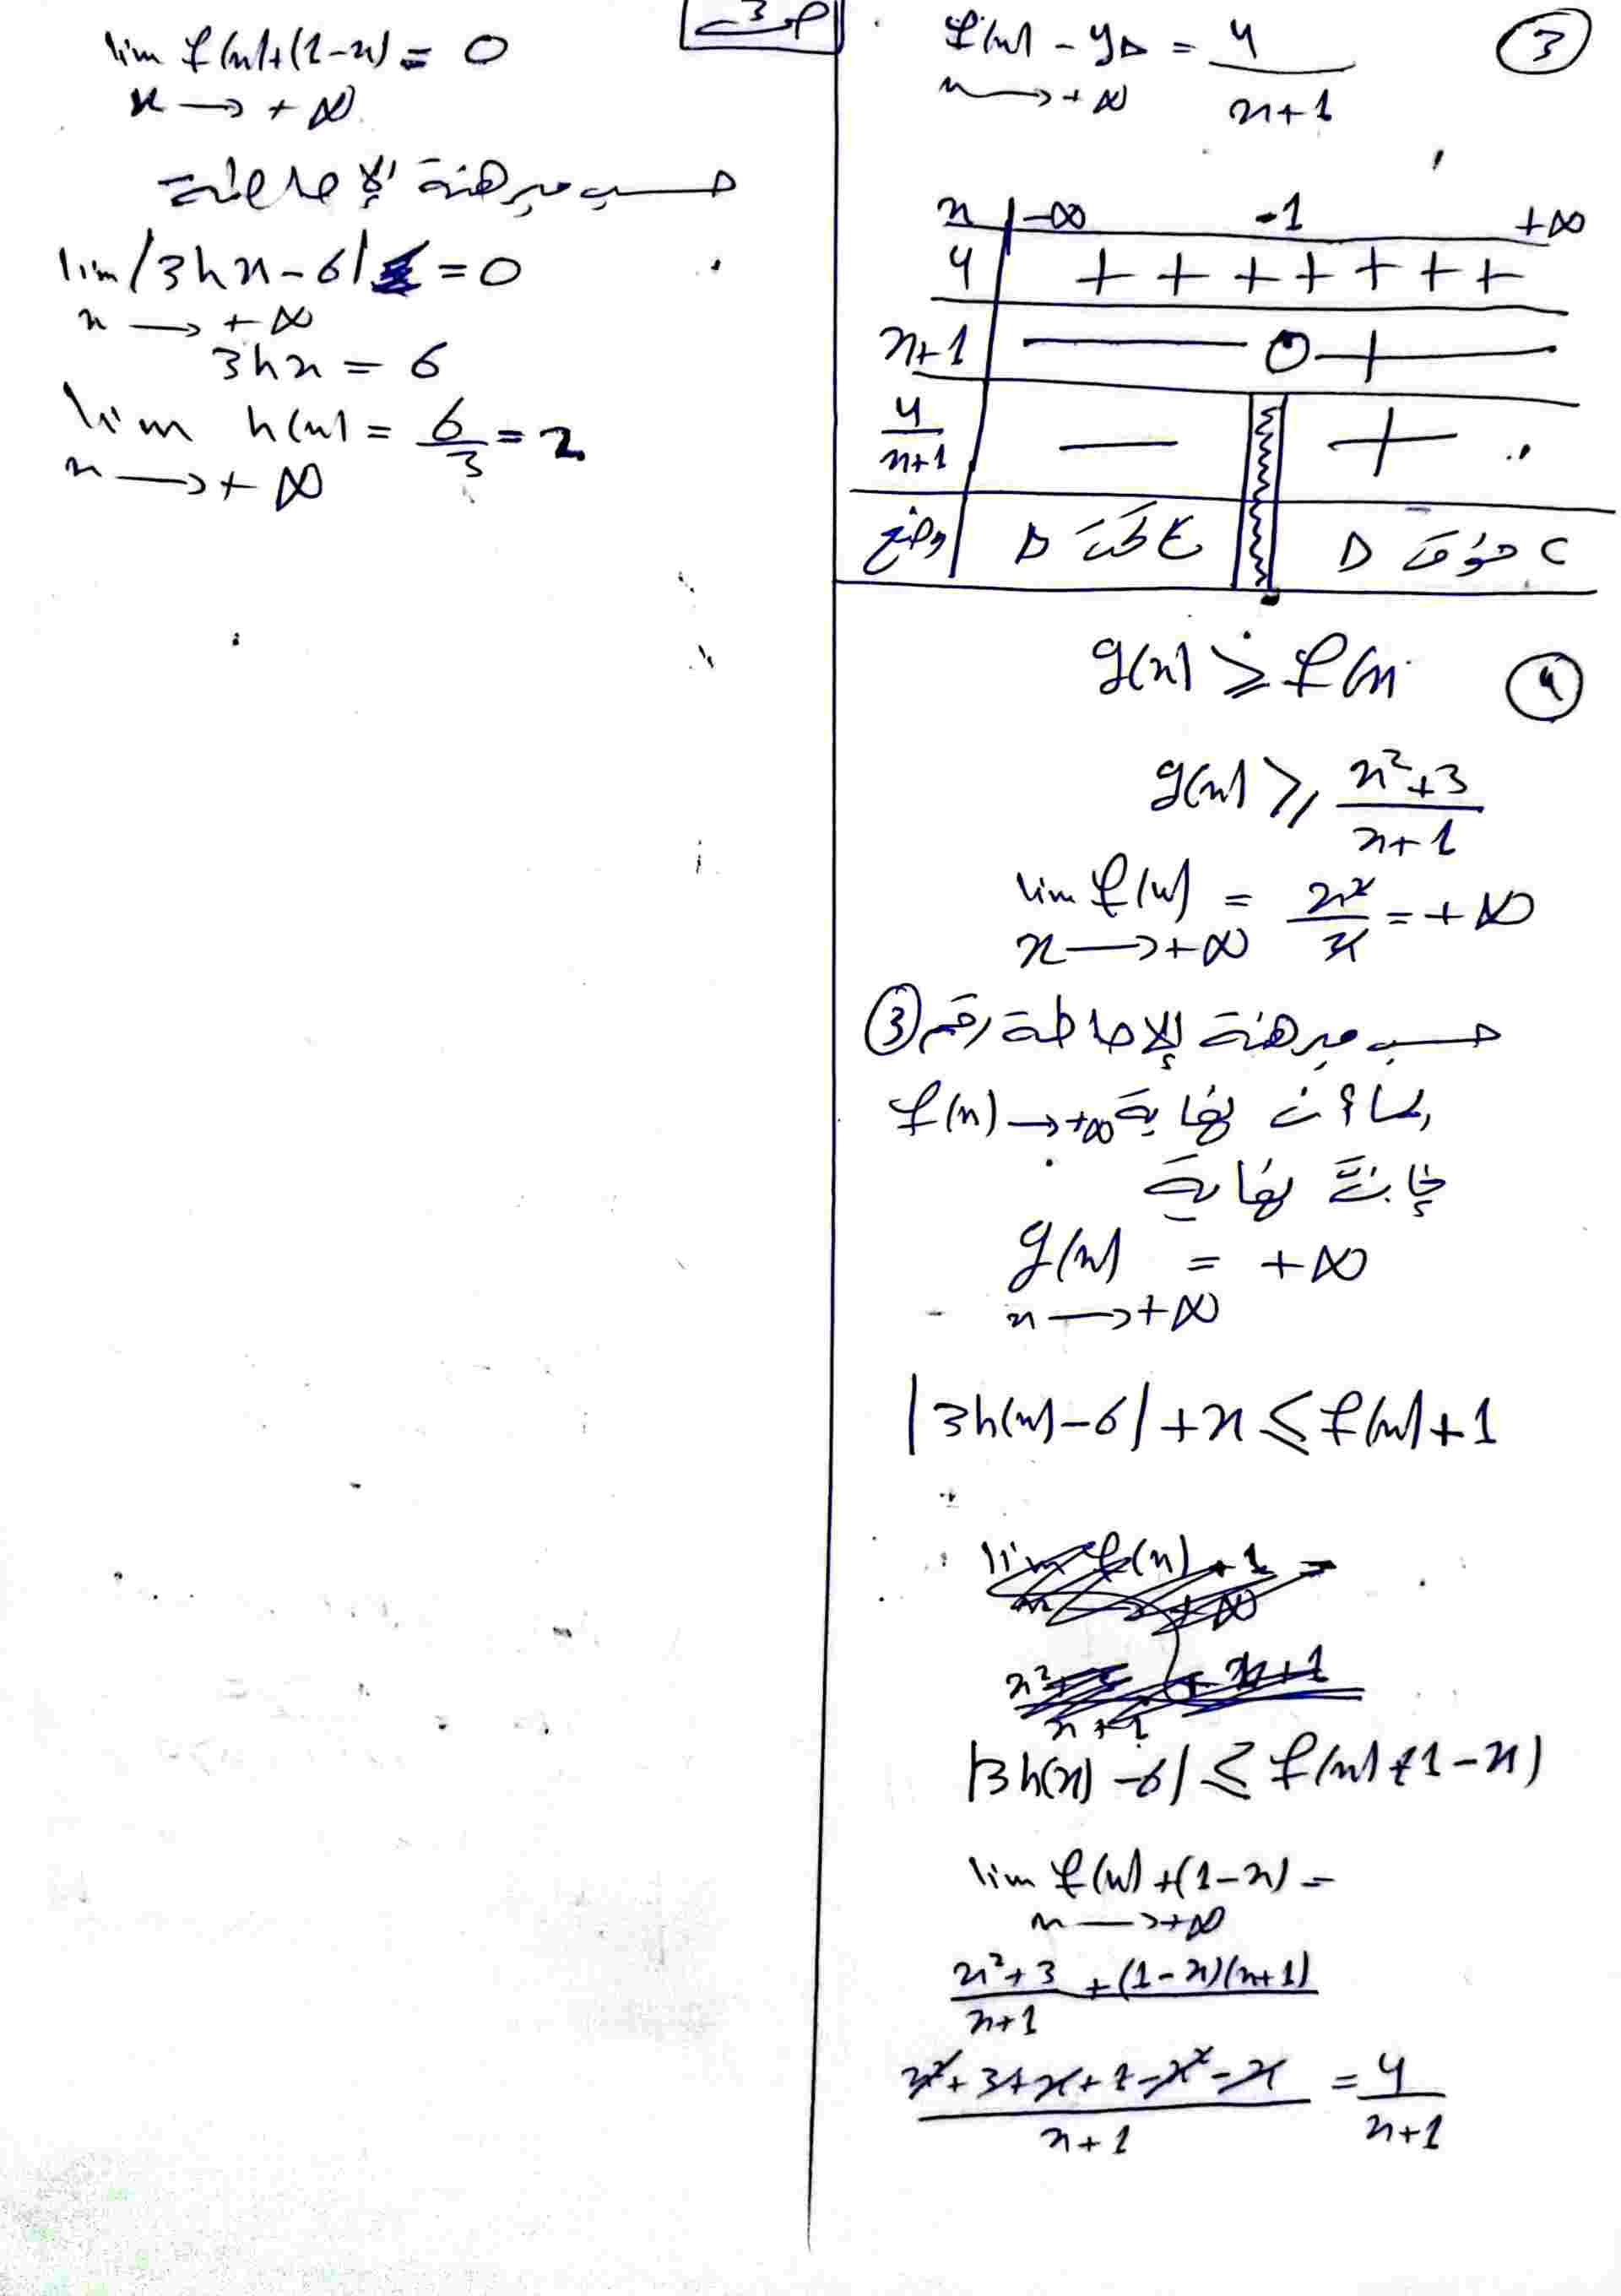 ص3
③
f(x) - y_Δ = 4/(x+1)
x → +∞
x | -∞ -1 +∞
4 | + + + + + + +
x+1 | — 0 +
4/(x+1) | — || +
وضع | C تحت D || C فوق D
④
g(x) ⩾ f(x)
g(x) ⩾ (x²+3)/(x+1)
lim f(x) = x²/x = +∞
x → +∞
حسب مبرهنة الإحاطة رقم ③
بما أن نهاية f(x) → +∞
فإنّ نهاية
g(x) = +∞
x → +∞
|3h(x)-6| + x ⩽ f(x)+1
|3h(x)-6| ⩽ f(x)+1-x)
lim f(x)+(1-x) =
x → +∞
(x²+3)/(x+1) + (1-x)(x+1)
(x²+3+x+1-x²-x)/(x+1) = 4/(x+1)
lim f(x)+(1-x) = 0
x → +∞
حسب مبرهنة الإحاطة
lim |3hx-6| = 0
x → +∞
3hx = 6
lim h(x) = 6/3 = 2
x → +∞